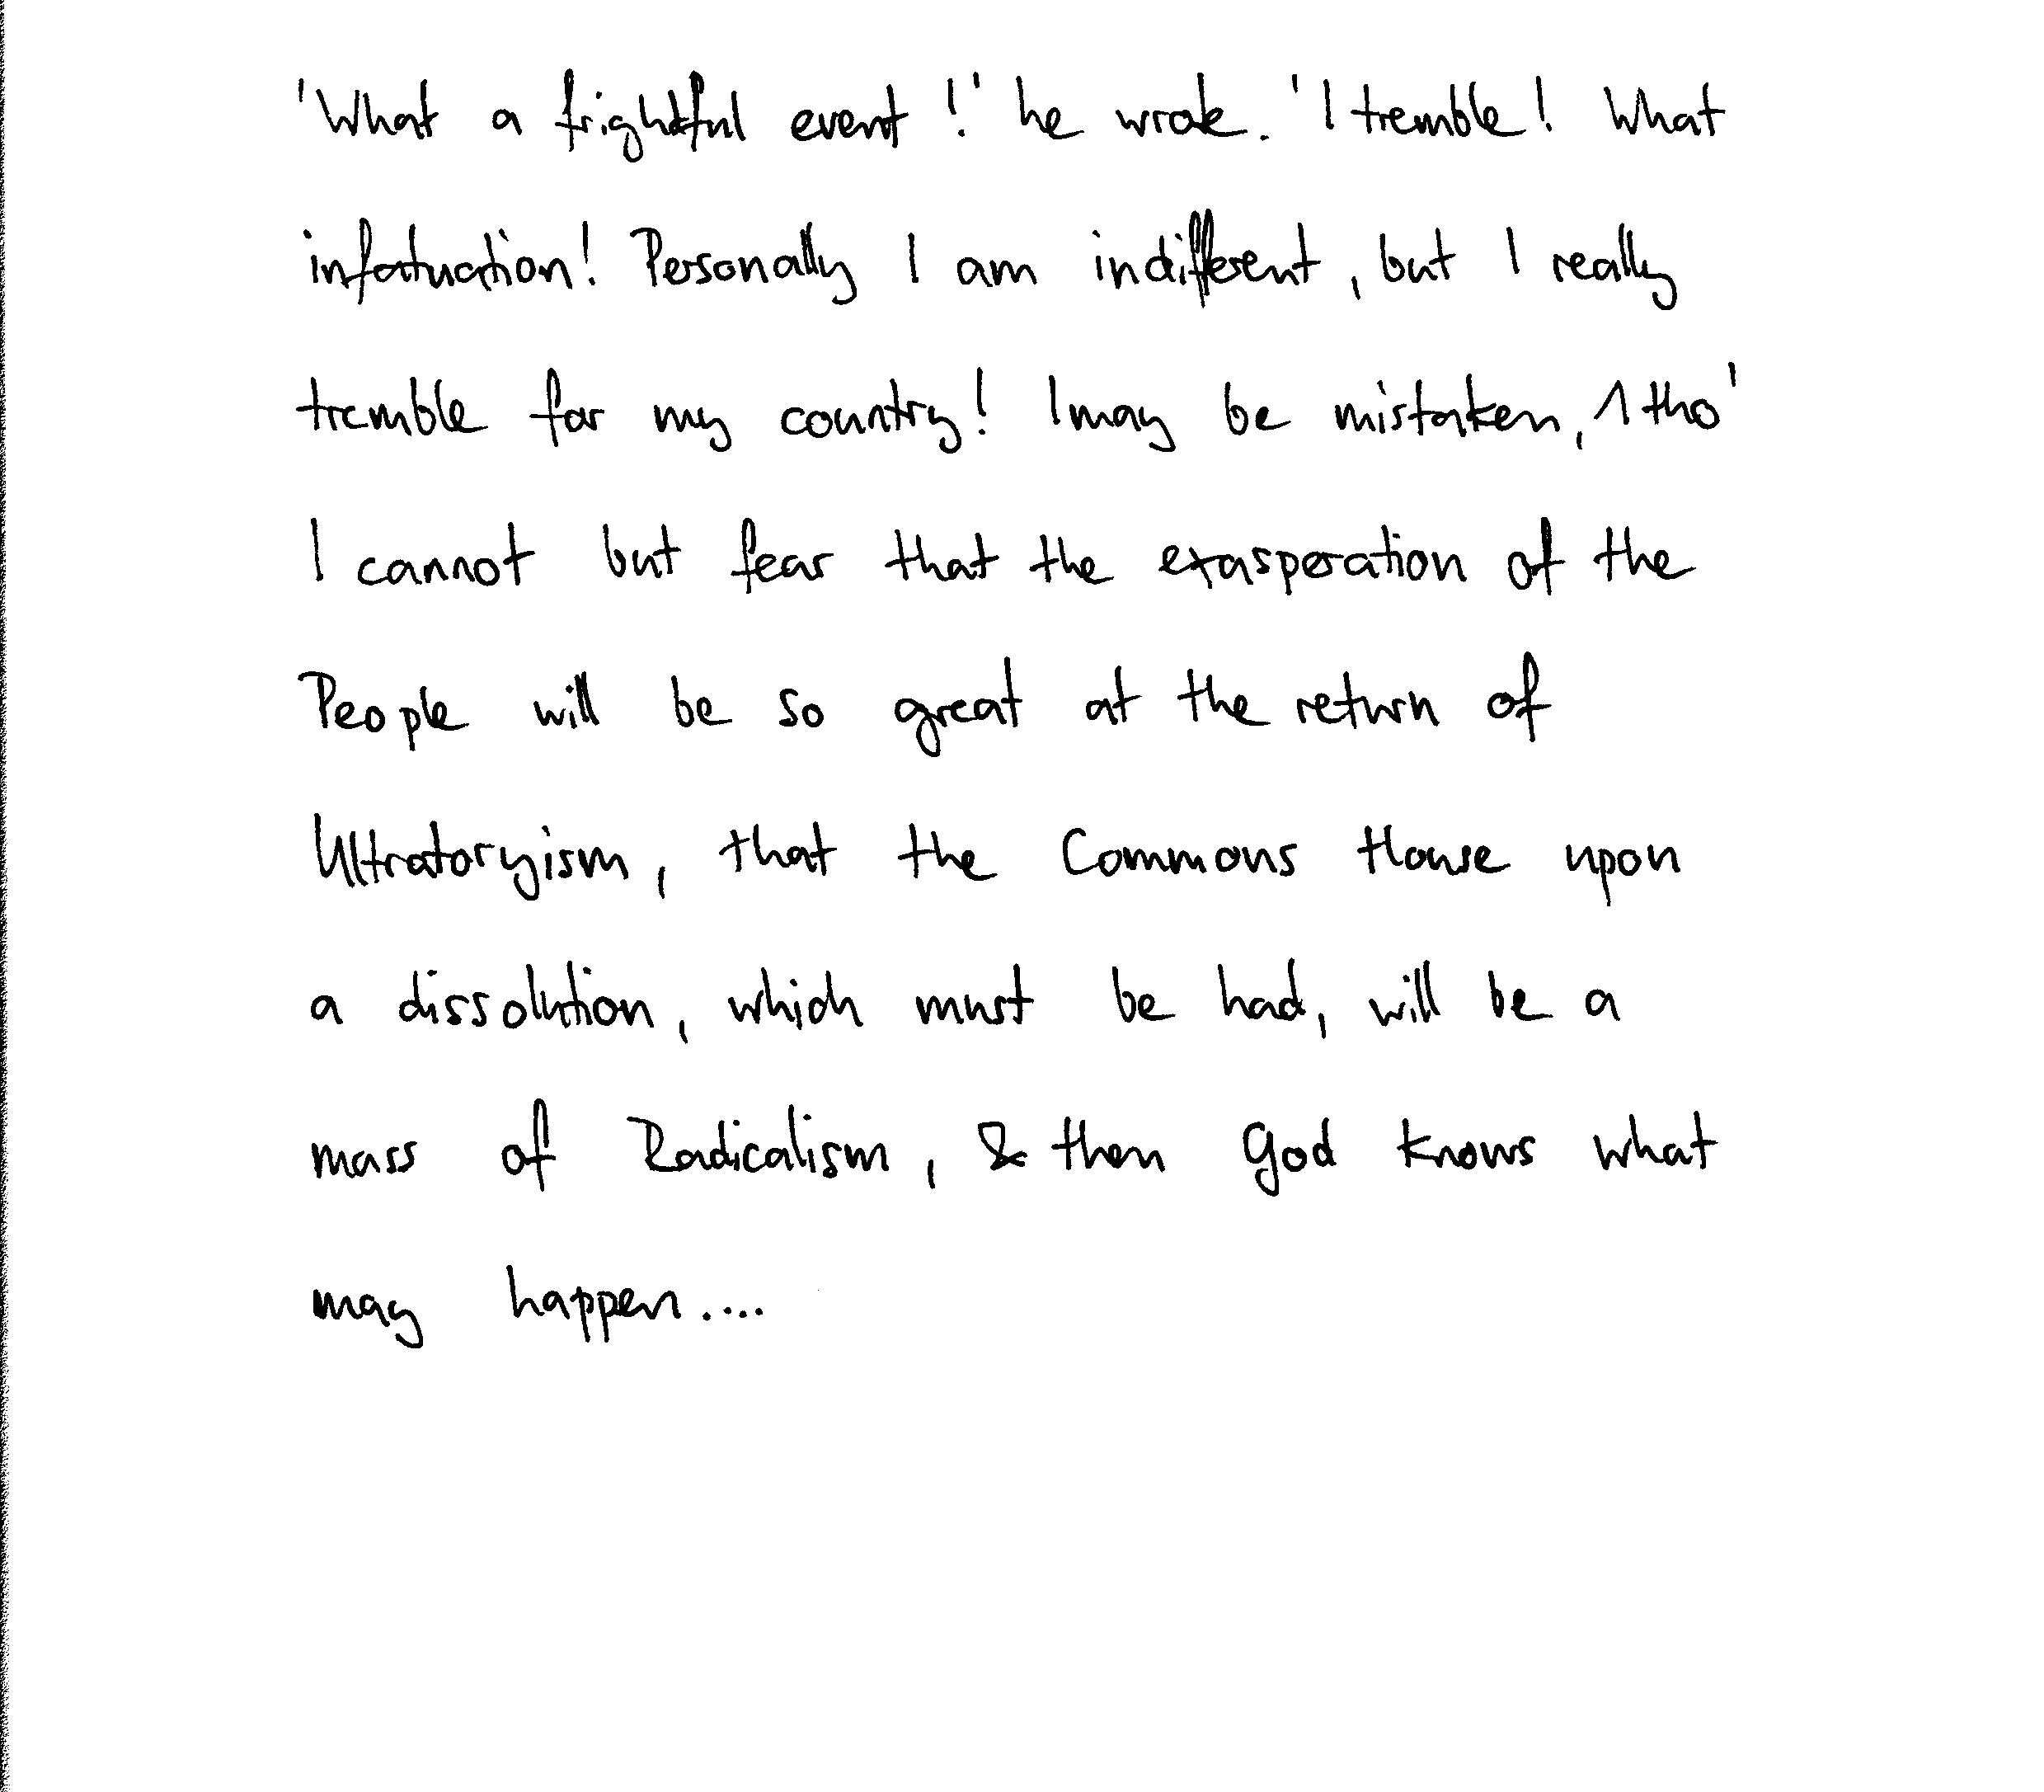 'What a frightful event!' he wrote. 'I tremble! What
infatuation! Personally I am indifferent, but I really
tremble for my country! I may be mistaken, 1 tho'
I cannot but fear that the exasperation of the
People will be so great at the return of
Ultratoryism, that the Commons House upon
a dissolution, which must be had, will be a
mass of Radicalism, & then God knows what
may happen....